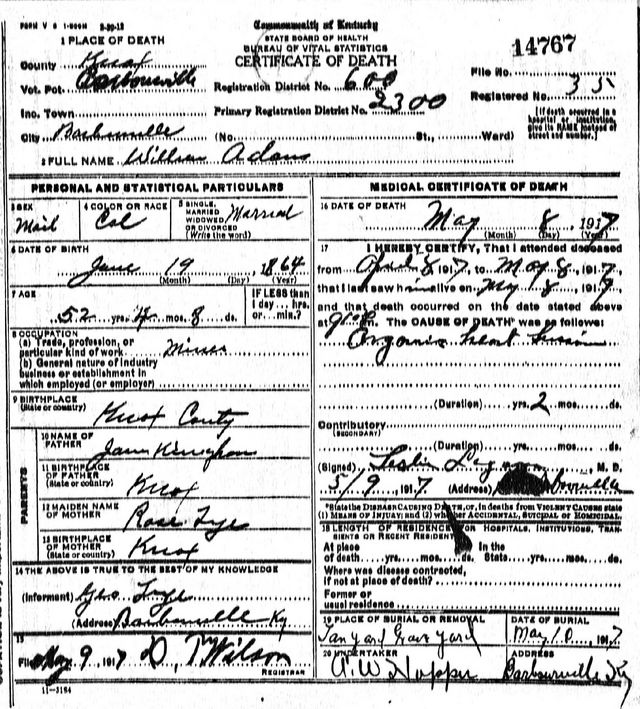 FORM V S 1-500M 2-20-12
Commonwealth of Kentucky
STATE BOARD OF HEALTH
BUREAU OF VITAL STATISTICS
CERTIFICATE OF DEATH
14767
1 PLACE OF DEATH
County Knox
Vot. Pct. Barbourville
Inc. Town
City Barbourville (No. St., Ward)
Registration District No. 600
Primary Registration District No. 2300
File No.
Registered No. 35
[If death occurred in a hospital or institution, give its NAME instead of street and number.]
2 FULL NAME William Adams
PERSONAL AND STATISTICAL PARTICULARS
3 SEX Mail
4 COLOR OR RACE Col
5 SINGLE, MARRIED WIDOWED OR DIVORCED (Write the word) Married
6 DATE OF BIRTH
June 19 1864
(Month) (Day) (Year)
7 AGE
52 yrs. mos. 8 ds.
IF LESS than 1 day... hrs. or min.?
8 OCCUPATION
(a) Trade, profession, or particular kind of work Miner
(b) General nature of industry business or establishment in which employed (or employer)
9 BIRTHPLACE
(State or country) Knox County
PARENTS
10 NAME OF FATHER
11 BIRTHPLACE OF FATHER (State or country) Knox
12 MAIDEN NAME OF MOTHER Rose Tye
13 BIRTHPLACE OF MOTHER (State or country) Knox
14 THE ABOVE IS TRUE TO THE BEST OF MY KNOWLEDGE
(Informant) Geo Tye
(Address) Barbourville Ky
15
Filed May 9 1917 D. T Wilson
REGISTRAR
11-3184
MEDICAL CERTIFICATE OF DEATH
16 DATE OF DEATH
May 8, 1917
(Month) (Day) (Year)
17 I HEREBY CERTIFY, That I attended deceased
from April 8 1917, to May 8, 1917,
that I last saw him alive on May 8, 1917
and that death occurred on the date stated above
at m. The CAUSE OF DEATH* was as follows:
Organic heart
(Duration) yrs. 2 mos. ds.
Contributory
(SECONDARY)
(Duration) yrs. mos. ds.
(Signed) Leslie Logan M. D.
5/9 1917 (Address) Barbourville
*State the DISEASE CAUSING DEATH, or, in deaths from VIOLENT CAUSES state
(1) MEANS OF INJURY; and (2) whether ACCIDENTAL, SUICIDAL or HOMICIDAL.
18 LENGTH OF RESIDENCE (FOR HOSPITALS, INSTITUTIONS, TRANSIENTS OR RECENT RESIDENTS)
At place of death yrs. mos. ds. In the State yrs. mos. ds.
Where was disease contracted,
if not at place of death?
Former or
usual residence
19 PLACE OF BURIAL OR REMOVAL
Tan yard Grave yard
DATE OF BURIAL
May 10, 1917
20 UNDERTAKER
A W Hopper
ADDRESS
Barbourville Ky